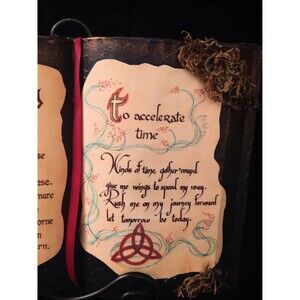 se
ase.
mare
orne
urn.
To accelerate
time
Winds of time, gather round
give me wings to speed my way.
Rush me on my journey forward
let tomorrow be today.